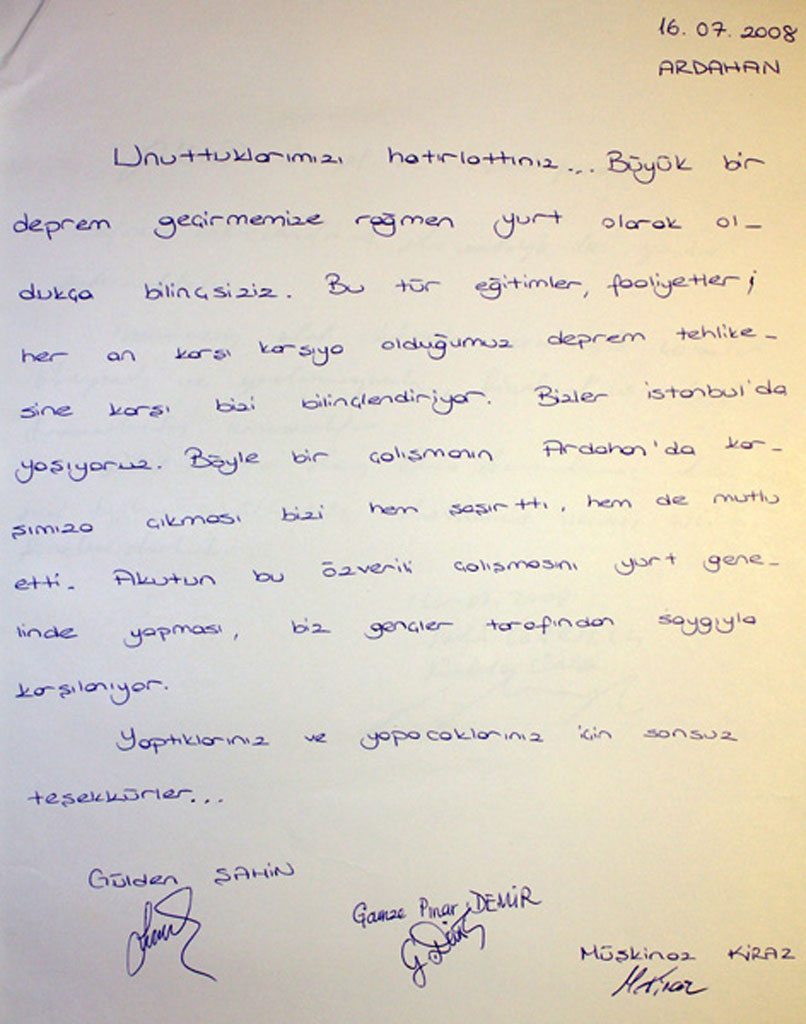 16.07.2008
ARDAHAN
Unuttuklarımızı hatırlattınız... Büyük bir
deprem geçirmemize rağmen yurt olarak ol-
dukça bilinçsiziz. Bu tür eğitimler, faaliyetler;
her an karşı karşıya olduğumuz deprem tehlike-
sine karşı bizi bilinçlendiriyor. Bizler İstanbul'da
yaşıyoruz. Böyle bir çalışmanın Ardahan'da kar-
şımıza çıkması bizi hem şaşırttı, hem de mutlu
etti. Akutun bu özverili çalışmasını yurt gene-
linde yapması, biz gençler tarafından saygıyla
karşılanıyor.
Yaptıklarınız ve yapacaklarınız için sonsuz
teşekkürler...
Gülden ŞAHİN
Gamze Pınar DEMİR
Müşkinaz KİRAZ
M.Kiraz